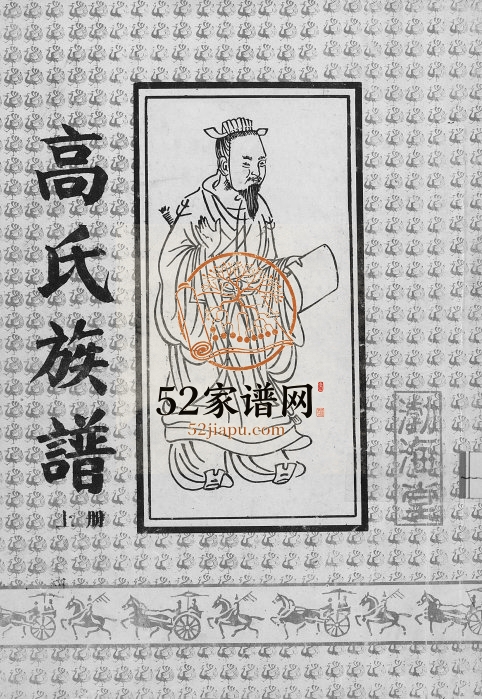 高氏族譜
上册
渤海堂
52家谱网
52jiapu.com